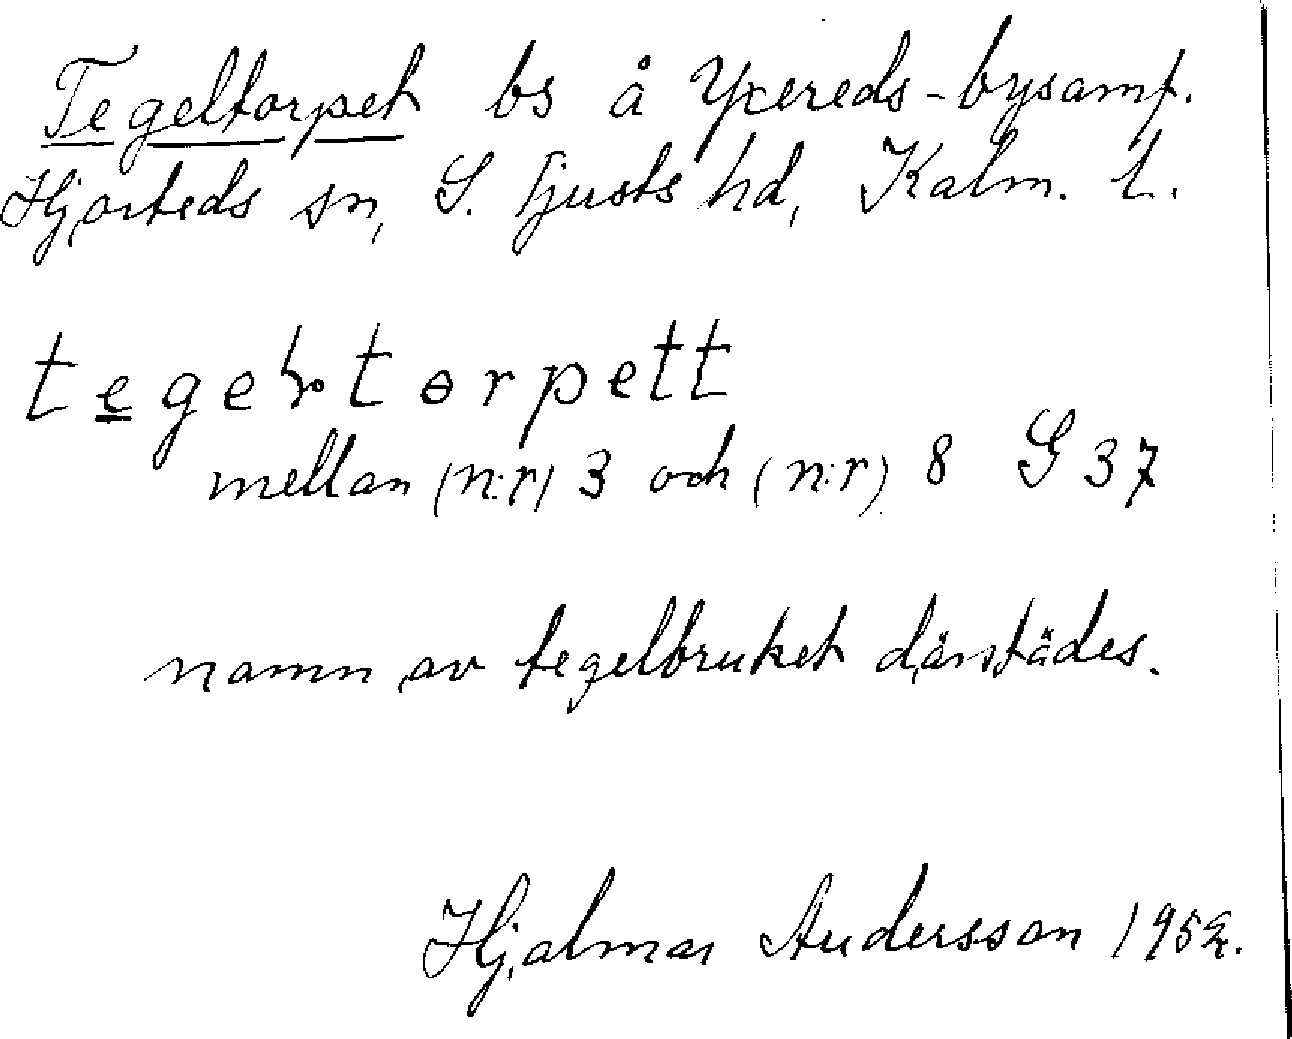 Tegeltorpet bs å Yxereds-bysamf.
Hjorteds sn, S. Tjusts hd, Kalm. l.
mellan (n:r) 3 och (n:r) 8 G 37
namn av tegelbruket därstädes.
Hjalmar Andersson 1952.